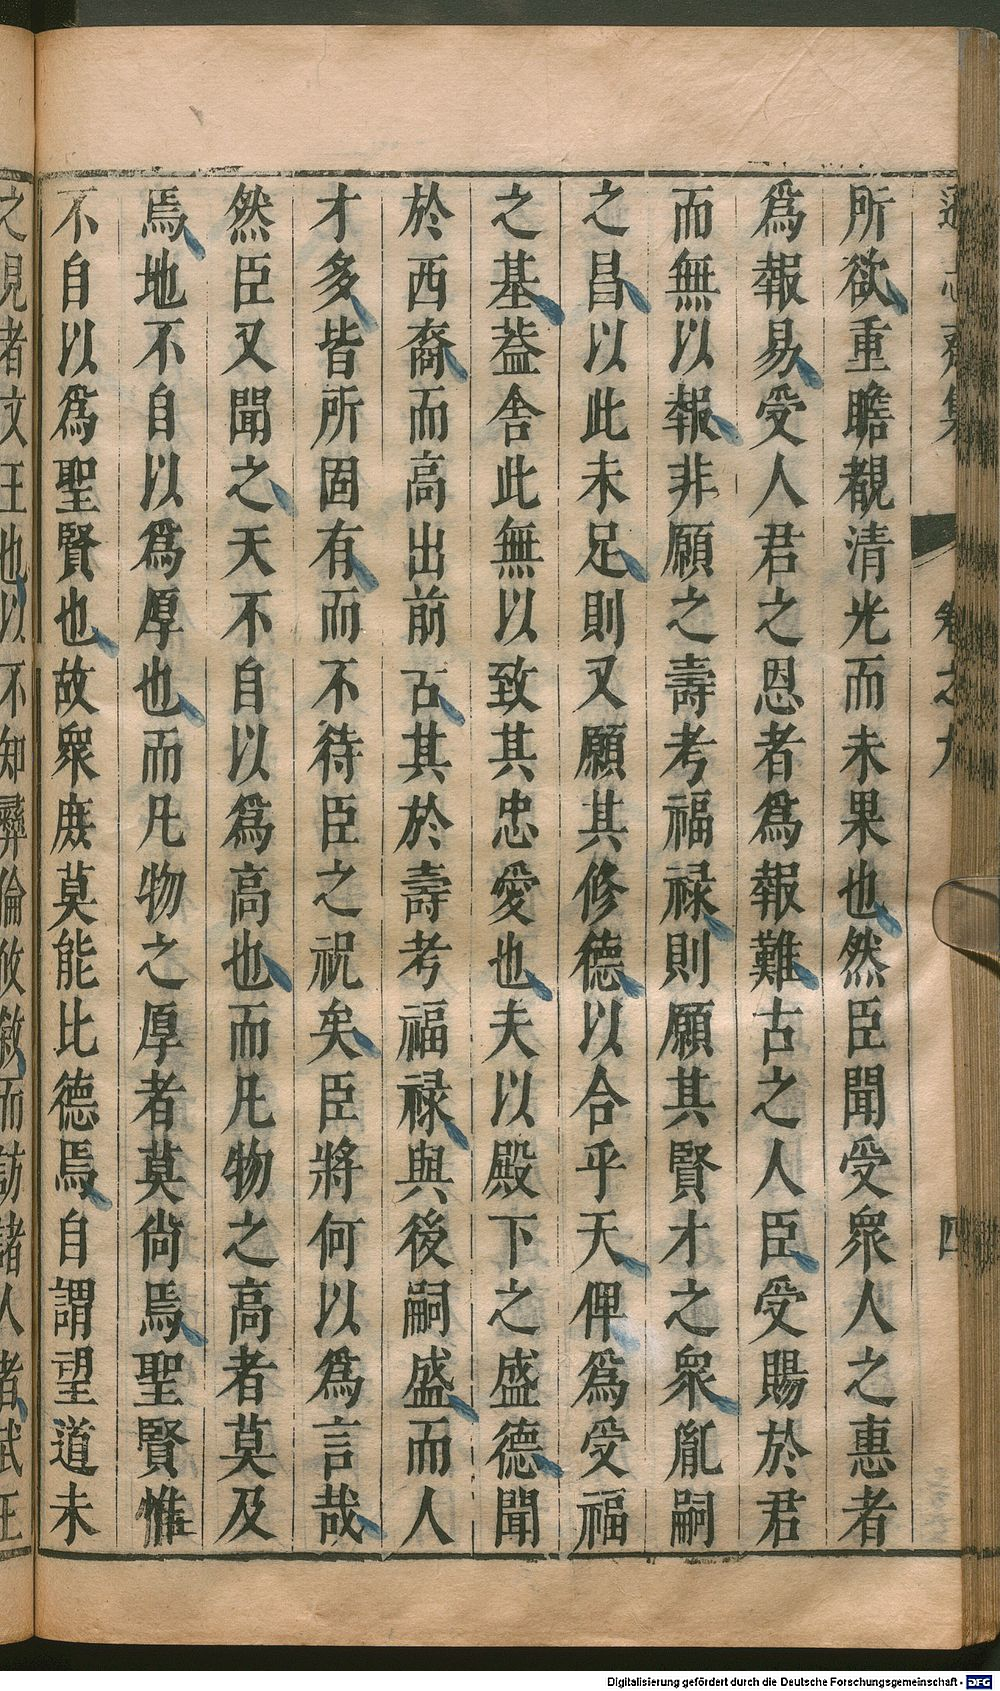 卷之九
四
所欲重瞻覩清光而未果也然臣聞受衆人之惠者
爲報易受人君之恩者爲報難古之人臣受賜於君
而無以報非願之壽考福祿則願其賢才之衆胤嗣
之昌以此未足則又願其修德以合乎天俾爲受福
之基葢舍此無以致其忠愛也夫以殿下之盛德聞
於西裔而高出前古其於壽考福祿與後嗣盛而人
才多皆所固有而不待臣之祝矣臣將何以爲言哉
然臣又聞之天不自以爲高也而凡物之高者莫及
焉地不自以爲厚也而凡物之厚者莫尙焉聖賢惟
不自以爲聖賢也故衆庶莫能比德焉自謂望道未
之見者文王也以不知彝倫攸敘而訪諸人者武王
Digitalisierung gefördert durch die Deutsche Forschungsgemeinschaft - DFG